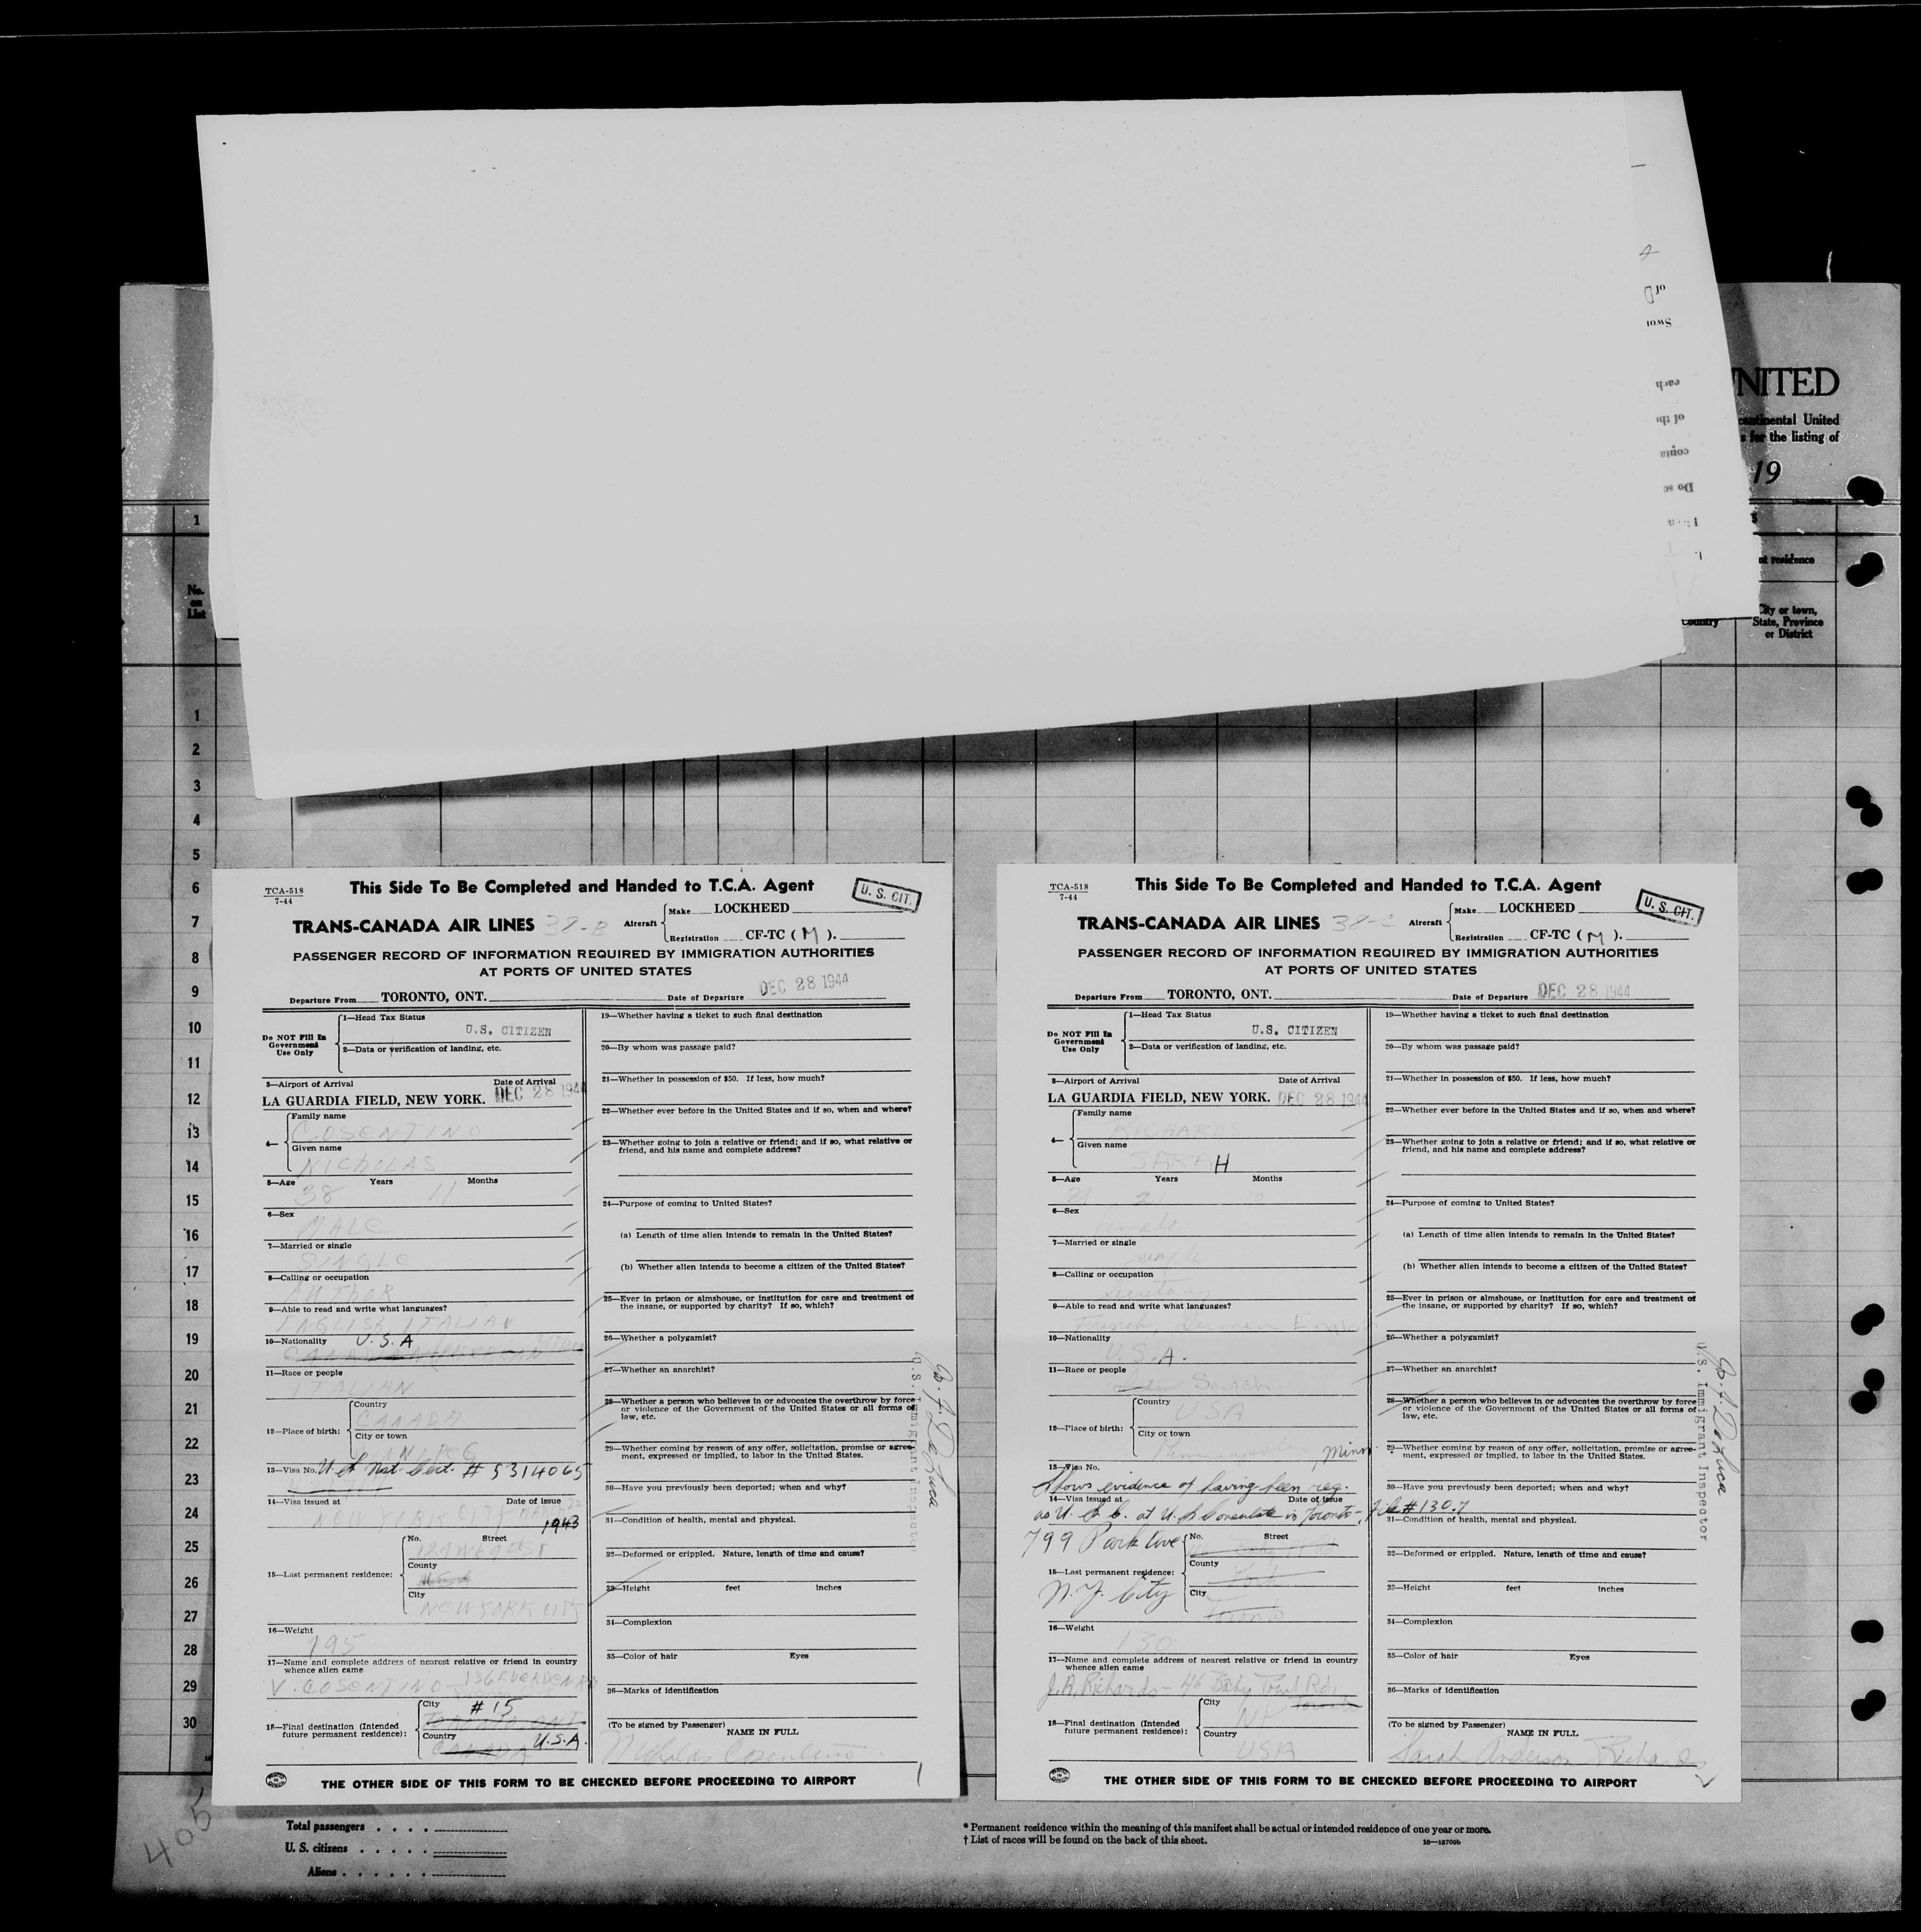 NITED
continental United
s for the listing of
19
1
No.
on
List
nt residence
Country
City or town,
State, Province
or District
1
2
3
4
5
6
7
8
9
10
11
12
13
14
15
16
17
18
19
20
21
22
23
24
25
26
27
28
29
30
TCA-518
7-44
This Side To Be Completed and Handed to T.C.A. Agent
U. S. CIT.
TRANS-CANADA AIR LINES 38-B
Aircraft
Make LOCKHEED
Registration CF-TC ( M ).
PASSENGER RECORD OF INFORMATION REQUIRED BY IMMIGRATION AUTHORITIES
AT PORTS OF UNITED STATES
Departure From TORONTO, ONT. Date of Departure DEC 28 1944
Do NOT Fill In
Government
Use Only
1—Head Tax Status
U.S. CITIZEN
2—Data or verification of landing, etc.
3—Airport of Arrival Date of Arrival
LA GUARDIA FIELD, NEW YORK. DEC 28 1944
4—
Family name
COSENTINO
Given name
NICHOLAS
5—Age Years Months
38 11
6—Sex
MALE
7—Married or single
SINGLE
8—Calling or occupation
AUTHOR
9—Able to read and write what languages?
ENGLISH ITALIAN
10—Nationality U.S.A
11—Race or people
ITALIAN
12—Place of birth:
Country
CANADA
City or town
13—Visa No. U.S. Nat. Cert. # 5314065
14—Visa issued at Date of issue
NEW YORK CITY 1943
15—Last permanent residence:
No. Street
County
City
NEW YORK CITY
16—Weight
195
17—Name and complete address of nearest relative or friend in country
whence alien came
V. COSENTINO 136 EVERDEN RD
18—Final destination (Intended
future permanent residence):
City # 15
TORONTO ONT
Country U.S.A.
CANADA
19—Whether having a ticket to such final destination
20—By whom was passage paid?
21—Whether in possession of $50. If less, how much?
22—Whether ever before in the United States and if so, when and where?
23—Whether going to join a relative or friend; and if so, what relative or
friend, and his name and complete address?
24—Purpose of coming to United States?
(a) Length of time alien intends to remain in the United States?
(b) Whether alien intends to become a citizen of the United States?
25—Ever in prison or almshouse, or institution for care and treatment of
the insane, or supported by charity? If so, which?
26—Whether a polygamist?
27—Whether an anarchist?
28—Whether a person who believes in or advocates the overthrow by force
or violence of the Government of the United States or all forms of
law, etc.
29—Whether coming by reason of any offer, solicitation, promise or agree-
ment, expressed or implied, to labor in the United States.
30—Have you previously been deported; when and why?
31—Condition of health, mental and physical.
32—Deformed or crippled. Nature, length of time and cause?
33—Height feet inches
34—Complexion
35—Color of hair Eyes
36—Marks of identification
(To be signed by Passenger)
NAME IN FULL
Nicholas Cosentino
THE OTHER SIDE OF THIS FORM TO BE CHECKED BEFORE PROCEEDING TO AIRPORT
U.S. Immigrant Inspector
TCA-518
7-44
This Side To Be Completed and Handed to T.C.A. Agent
U. S. CIT.
TRANS-CANADA AIR LINES 38-C
Aircraft
Make LOCKHEED
Registration CF-TC ( M ).
PASSENGER RECORD OF INFORMATION REQUIRED BY IMMIGRATION AUTHORITIES
AT PORTS OF UNITED STATES
Departure From TORONTO, ONT. Date of Departure DEC 28 1944
Do NOT Fill In
Government
Use Only
1—Head Tax Status
U.S. CITIZEN
2—Data or verification of landing, etc.
3—Airport of Arrival Date of Arrival
LA GUARDIA FIELD, NEW YORK. DEC 28 1944
4—
Family name
RICHARDS
Given name
SARAH
5—Age Years Months
6—Sex
Female
7—Married or single
single
8—Calling or occupation
secretary
9—Able to read and write what languages?
French, German English
10—Nationality
U.S.A.
11—Race or people
Scotch
12—Place of birth:
Country
USA
City or town
, Minn.
13—Visa No.
Shows evidence of having been reg.
14—Visa issued at Date of issue
as U.S.C. at U.S. Consulate in Toronto, File #130.7
799 Park Ave
15—Last permanent residence:
N.Y. City
No. Street
County
York
City
Toronto
16—Weight
130
17—Name and complete address of nearest relative or friend in country
whence alien came
J.A. Richards - 46 Baby Point Rd,
Toronto
18—Final destination (Intended
future permanent residence):
City
NY
Country
USA
19—Whether having a ticket to such final destination
20—By whom was passage paid?
21—Whether in possession of $50. If less, how much?
22—Whether ever before in the United States and if so, when and where?
23—Whether going to join a relative or friend; and if so, what relative or
friend, and his name and complete address?
24—Purpose of coming to United States?
(a) Length of time alien intends to remain in the United States?
(b) Whether alien intends to become a citizen of the United States?
25—Ever in prison or almshouse, or institution for care and treatment of
the insane, or supported by charity? If so, which?
26—Whether a polygamist?
27—Whether an anarchist?
28—Whether a person who believes in or advocates the overthrow by force
or violence of the Government of the United States or all forms of
law, etc.
29—Whether coming by reason of any offer, solicitation, promise or agree-
ment, expressed or implied, to labor in the United States.
30—Have you previously been deported; when and why?
31—Condition of health, mental and physical.
32—Deformed or crippled. Nature, length of time and cause?
33—Height feet inches
34—Complexion
35—Color of hair Eyes
36—Marks of identification
(To be signed by Passenger)
NAME IN FULL
Sarah Anderson Richards
THE OTHER SIDE OF THIS FORM TO BE CHECKED BEFORE PROCEEDING TO AIRPORT
U.S. Immigrant Inspector
405
Total passengers . . . .
U. S. citizens . . . . .
Aliens . . . . . .
* Permanent residence within the meaning of this manifest shall be actual or intended residence of one year or more.
† List of races will be found on the back of this sheet.
16—18709b